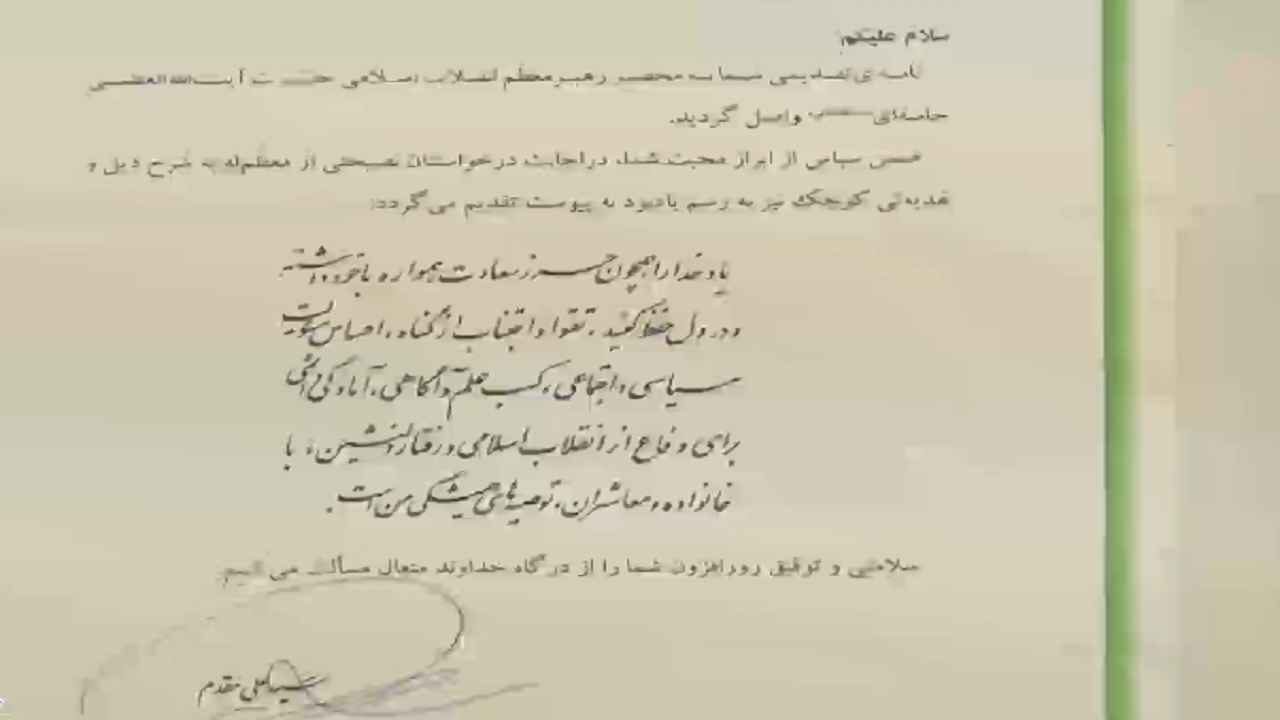 سلام علیکم
نامه ی تقدیمی شما به محضر رهبر معظم انقلاب اسلامی حضرت آیت‌الله العظمی
خامنه‌ای واصل گردید.
ضمن سپاس از ابراز محبت شما، در اجابت درخواستتان نصیحتی از معظم‌له به شرح ذیل و
هدیه‌ئی کوچک نیز به رسم یادبود به پیوست تقدیم می‌گردد:
یاد خدا را همچون حرز سعادت همواره با خود داشته
و در دل حفظ کنید، تقوا و اجتناب از گناه، احساس مسئولیت
سیاسی و اجتماعی، کسب علم و آگاهی، آمادگی دائمی
برای دفاع از انقلاب اسلامی و رفتار دلنشین، با
خانواده و معاشران، توصیه‌های همیشگی من است.
سلامتی و توفیق روزافزون شما را از درگاه خداوند متعال مسألت می کنیم
سیدعلی مقدم